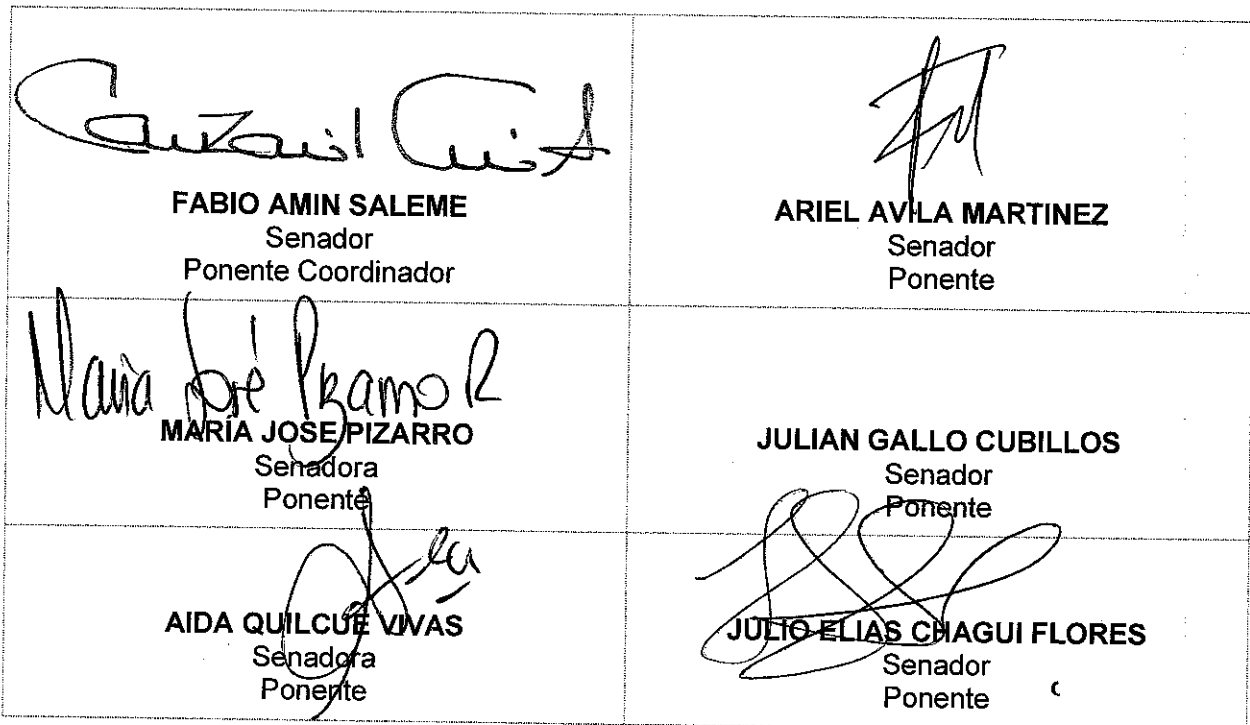 FABIO AMIN SALEME
Senador
Ponente Coordinador
ARIEL AVILA MARTINEZ
Senador
Ponente
Maria José Pizarro R
MARÍA JOSE PIZARRO
Senadora
Ponente
JULIAN GALLO CUBILLOS
Senador
Ponente
AIDA QUILCUE VIVAS
Senadora
Ponente
JULIO ELIAS CHAGUI FLORES
Senador
Ponente